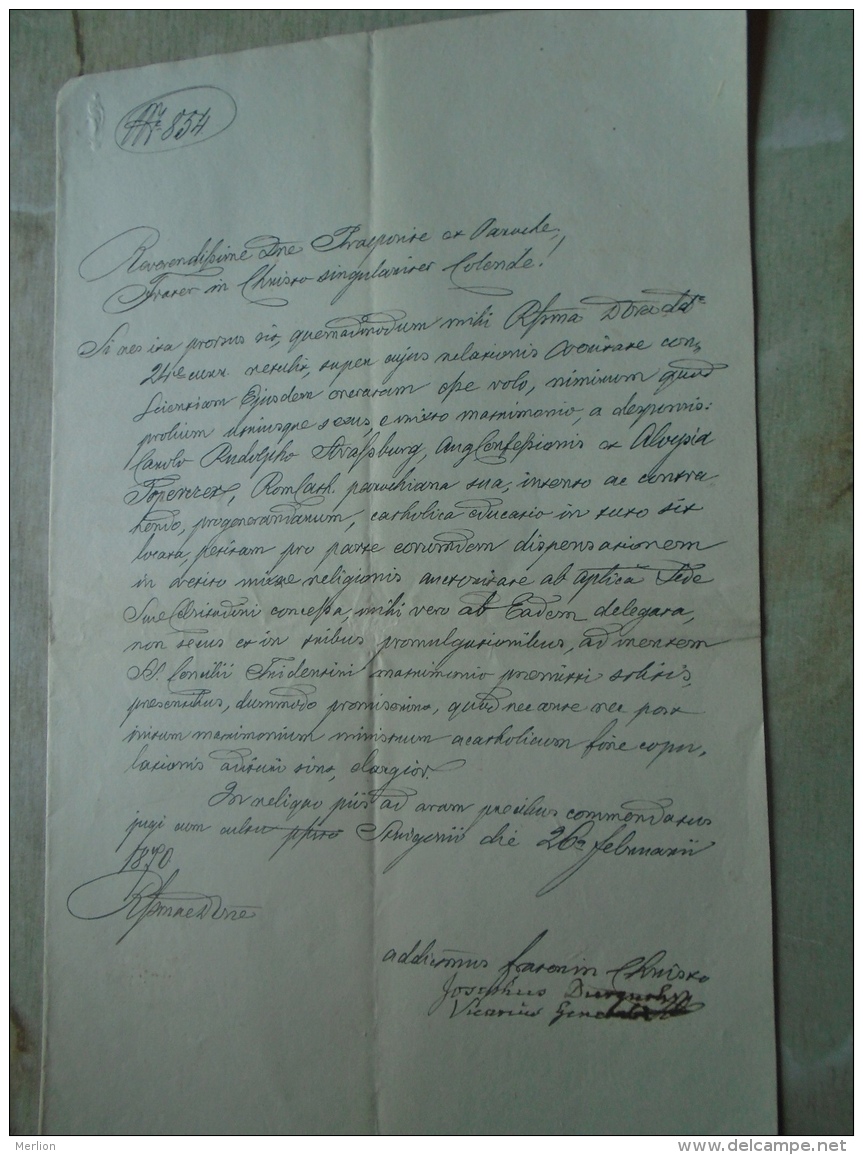 Nr 854
Reverendissime Dne Praeposite et Paroche,
Frater in Christo singulariter Colende!
Si res ita prorsus sit, quemadmodum mihi Rssma Dtio ddto
24ta curr. retulit, super cujus relationis veritate con,
scientiam Ejusdem oneratam esse volo, nimirum quod
prolium utriusque sexus, e mixto matrimonio, a desponsis:
Carolo Rudolpho Strassburg, Aug Confessionis et Aloysia
Toperczer, Rom Cath. parochiana sua, intento ac contra
hendo, progenerandarum, catholica educatio in tuto sit
locata, petitam pro parte eorumdem dispensationem
in vetito mixtae religionis auctoritate ab Aptica Sede
Suae Celsitudini concessa, mihi vero ab Eadem delegata,
non secus et in tribus promulgationibus, ad mentem
S. Concilii Tridentini matrimonio praemitti solitis,
praesentibus, dummodo promissirint, quod nec ante nec post
initum matrimonium ministrum acatholicum fine copu,
lationis adituri sint, elargior.
In reliquo piis ad aram precibus commendatus
jugi cum cultu Strigonii die 26a februarii
1870
Rssmae Dnae
addictmus frater in Christo
Josephus
Vicarius Generalis
Merlion
www.delcampe.net